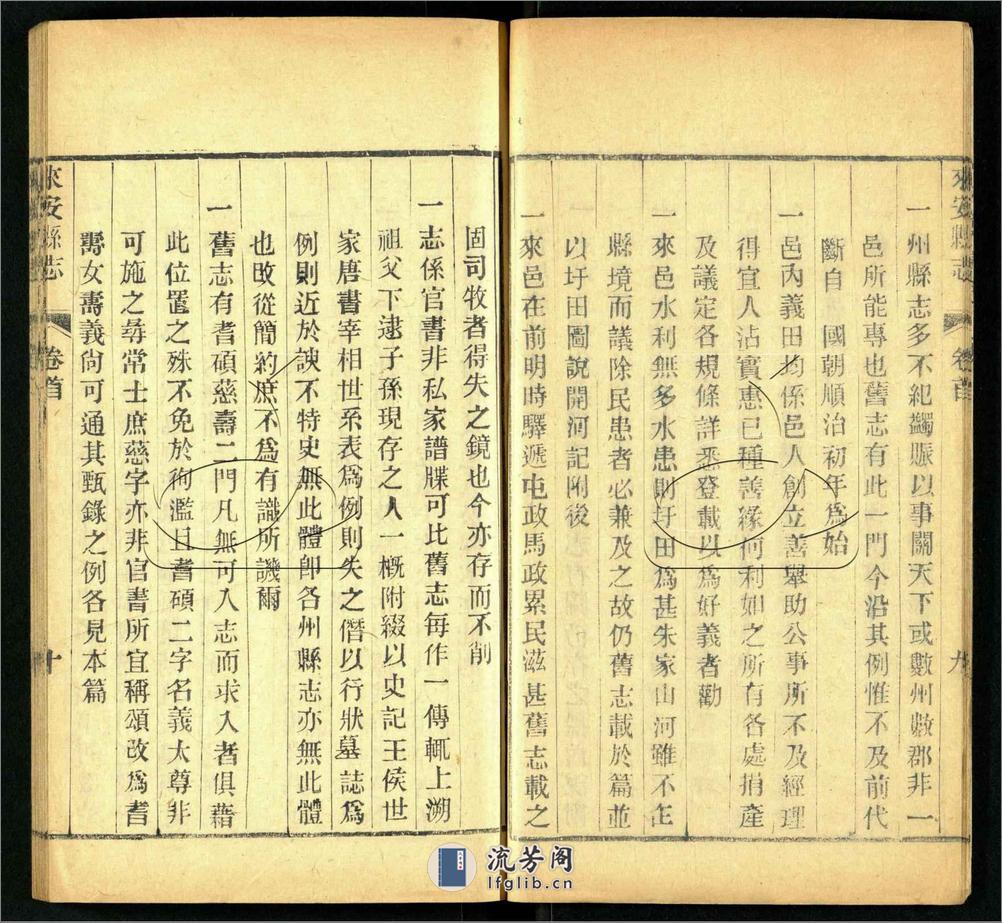 來安縣志
卷首
九
一州縣志多不紀蠲賑以事關天下或數州數郡非一
邑所能專也舊志有此一門今沿其例惟不及前代
斷自 國朝順治初年為始
一邑內義田均係邑人創立善舉助公事所不及經理
得宜人沾實惠已種善緣何利如之所有各處捐產
及議定各規條詳悉登載以為好義者勸
來邑水利無多水患則圩田為甚朱家山河雖不在
縣境而議除民患者必兼及之故仍舊志載於篇並
以圩田圖說開河記附後
一來邑在前明時驛遞屯政馬政累民滋甚舊志載之
固司牧者得失之鏡也今亦存而不削
一志係官書非私家譜牒可比舊志每作一傳輒上溯
祖父下逮子孫現存之人一概附綴以史記王侯世
家唐書宰相世系表為例則失之僭以行狀墓誌為
例則近於諛不特史無此體卽各州縣志亦無此體
也改從簡約庶不為有識所譏爾
一舊志有耆碩慈壽二門凡無可入志而求入者俱藉
此位置之殊不免於徇濫且耆碩二字名義太尊非
可施之尋常士庶慈字亦非官書所宜稱頌改為耆
壽女壽義尙可通其甄錄之例各見本篇
來安縣志
卷首
十
流芳阁
lfglib.cn